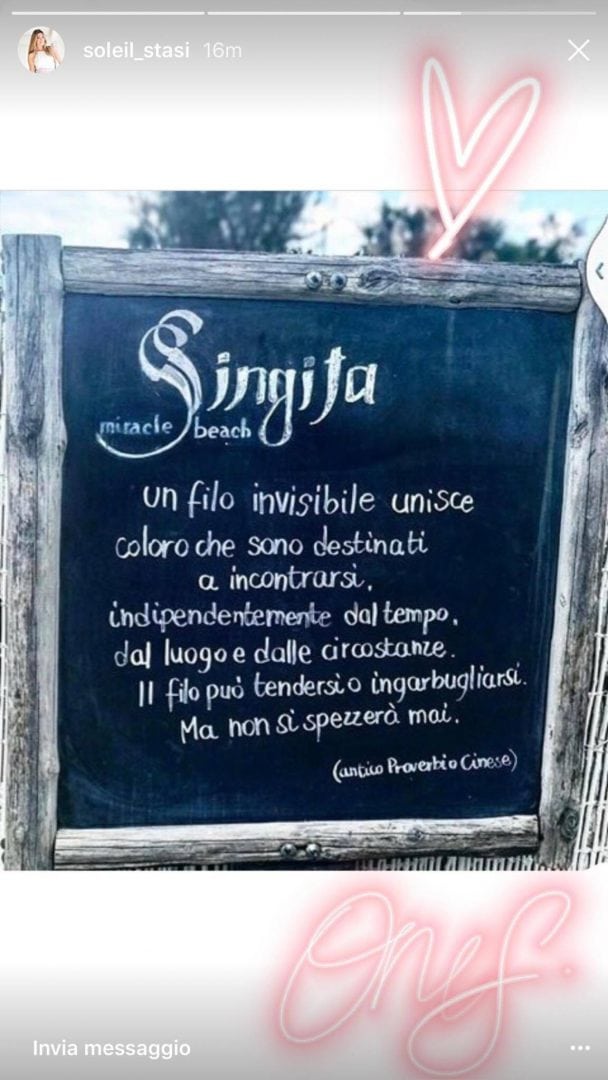 soleil_stasi 16m
Singita
miracle beach
un filo invisibile unisce
coloro che sono destinati
a incontrarsi,
indipendentemente dal tempo,
dal luogo e dalle circostanze.
Il filo può tendersi o ingarbugliarsi.
Ma non si spezzerà mai.
(antico Proverbio Cinese)
Invia messaggio